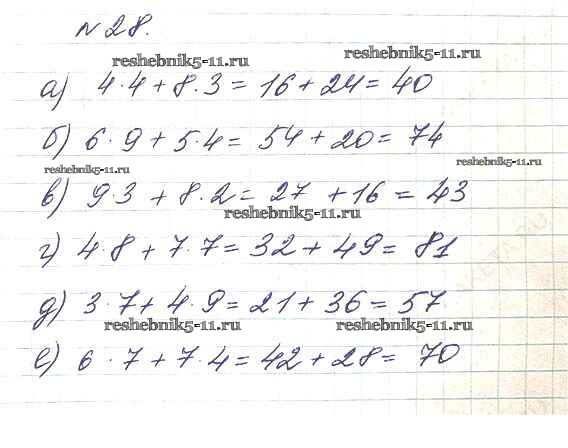 № 28.
reshebnik5-11.ru reshebnik5-11.ru
а) 4·4 + 8·3 = 16 + 24 = 40
б) 6·9 + 5·4 = 54 + 20 = 74
reshebnik5-11.ru reshebnik5-11.ru
в) 9·3 + 8·2 = 27 + 16 = 43
reshebnik5-11.ru
г) 4·8 + 7·7 = 32 + 49 = 81
д) 3·7 + 4·9 = 21 + 36 = 57
reshebnik5-11.ru reshebnik5-11.ru
е) 6·7 + 7·4 = 42 + 28 = 70